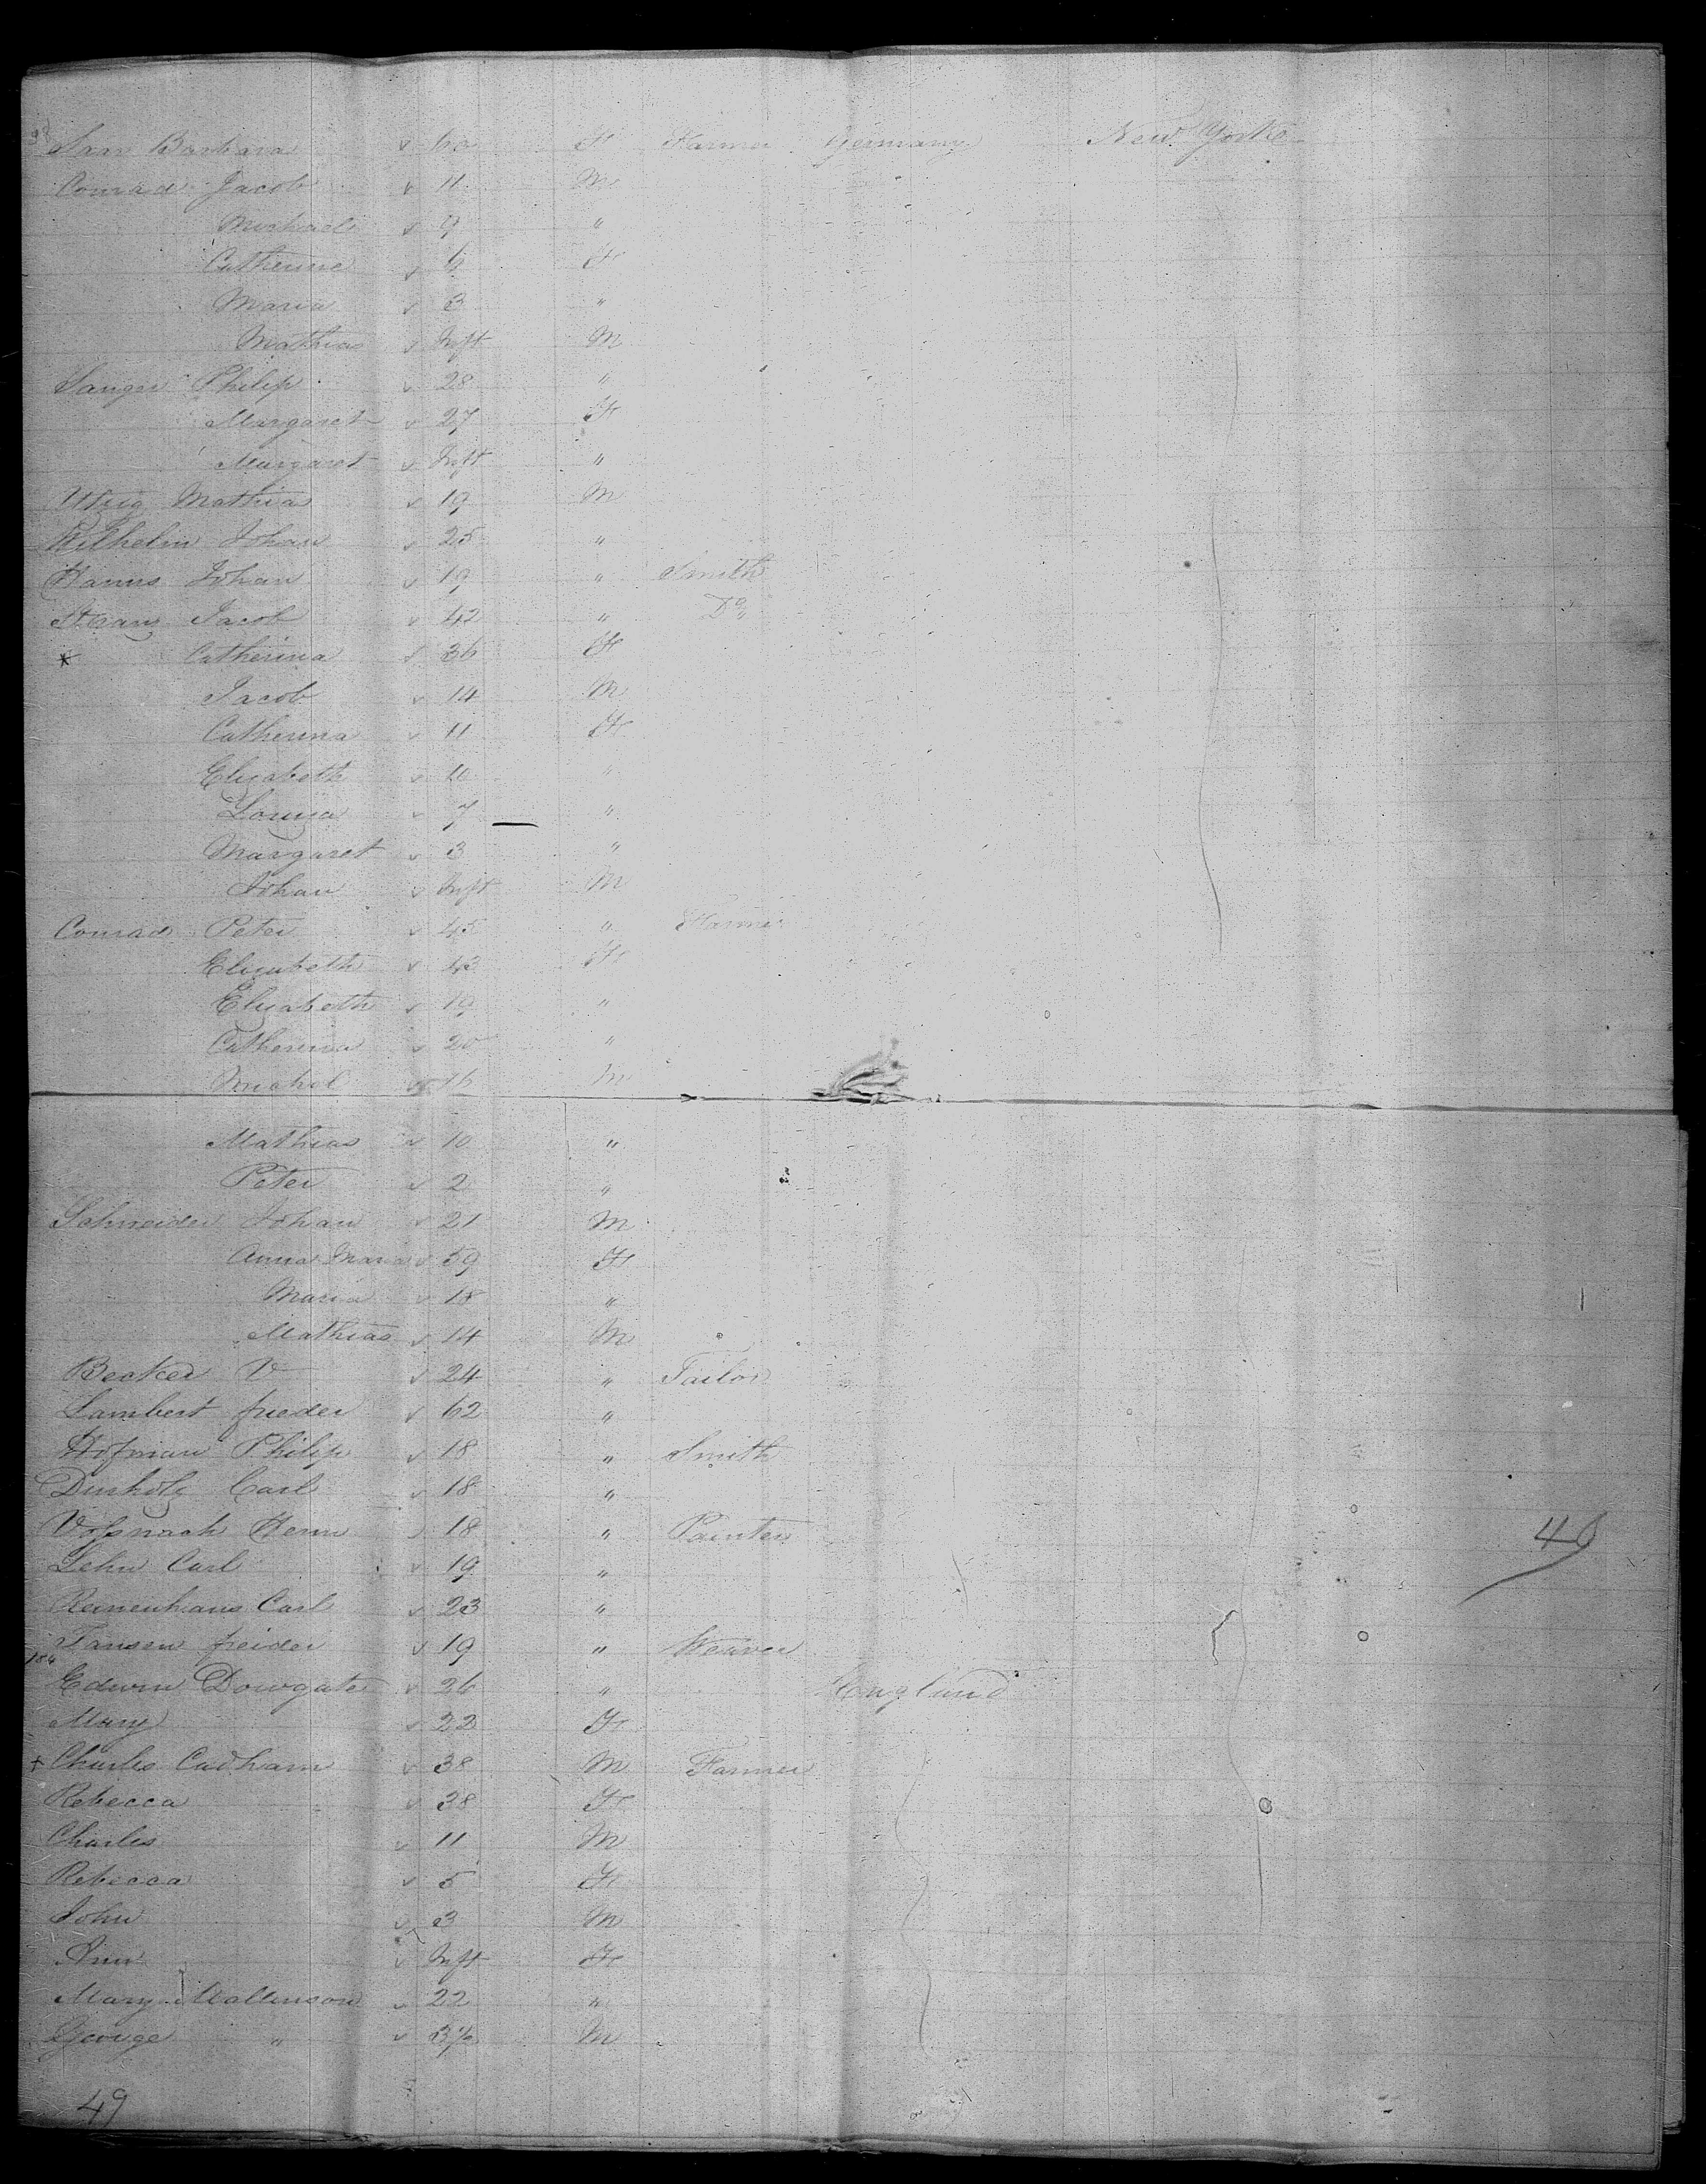 San Barbara v 60 F Farmer Germany New York
Conrad Jacob v 11 M
Michael v 9 "
Catherine v 6 F
Maria v 3 "
Mathias v Inft M
Sanger Philip v 28 "
Margaret v 27 F
Margaret v Inft "
Utzig Mathia v 19 M
Wilhelm Johan v 25 "
Hanns Johan v 19 " Smith
Jacob v 42 " Do
* Catherina v 36 F
Jacob v 14 M
Catherina v 11 F
Elizabeth v 10 "
Louisa v 7 "
Margaret v 3 "
Johan v Inft M
Conrad Peter v 45 " Farmer
Elizabeth v 43 F
Elizabeth v 19 "
Catherina v 20 "
Michel v 16 M
Mathias v 10 "
Peter v 2 "
Schneider Johan v 21 M
Anna Maria v 59 F
Maria v 18 "
Mathias v 14 M
Becker V v 24 " Tailor
Lambert frieder v 62 "
Hofman Philip v 18 " Smith
Carl v 18 "
Vossnach Herm v 18 " Painter 49
Lehn Carl v 19 "
Reinenhaus Carl v 23 "
Jansen freider v 19 " Weaver
184
Edwin Dowgate v 26 " England
Mary v 22 F
+ Charles Cadham v 38 M Farmer
Rebecca v 38 F
Charles v 11 M
Rebecca v 5 F
John v 3 M
Ann v Inft F
Mary Mallinson v 22 "
George " v M
49